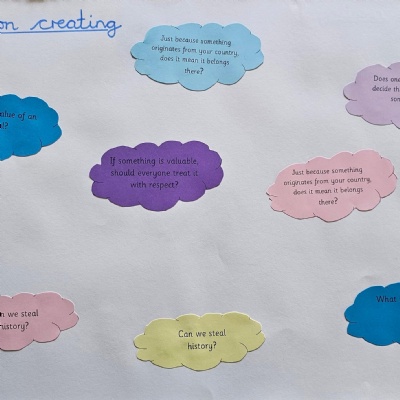 on creating
Just because something
originates from your country,
does it mean it belongs
there?
Does one
decide th
som
alue of an
l?
If something is valuable,
should everyone treat it
with respect?
Just because something
originates from your country,
does it mean it belongs
there?
n we steal
istory?
Can we steal
history?
What